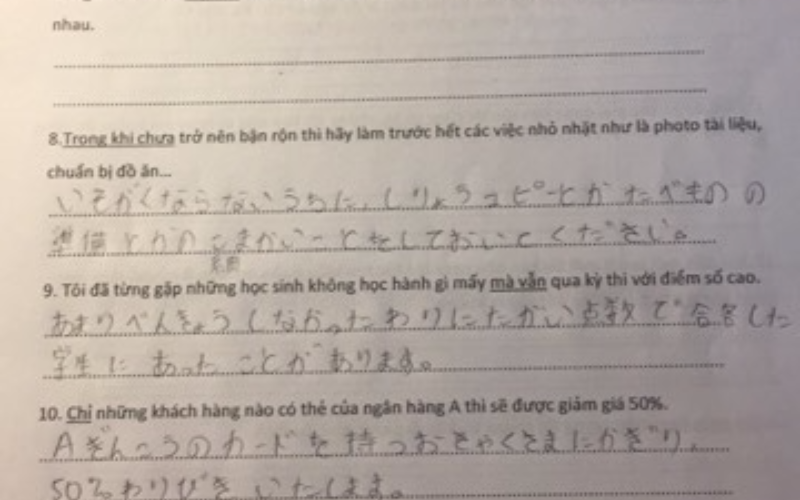 nhau.
8.Trong khi chưa trở nên bận rộn thì hãy làm trước hết các việc nhỏ nhặt như là photo tài liệu,
chuẩn bị đồ ăn...
いそがくならないうちに、しりょうコピーとかたべものの
準備とかのこまかいことをしておいてください。
9. Tôi đã từng gặp những học sinh không học hành gì mấy mà vẫn qua kỳ thi với điểm số cao.
あまりべんきょうしなかったわりにたかい点数で合格した
学生にあったことがあります。
10. Chỉ những khách hàng nào có thẻ của ngân hàng A thì sẽ được giảm giá 50%.
Aぎんこうのカードを持つおきゃくさまにかぎり、
50%わりびきいたします。